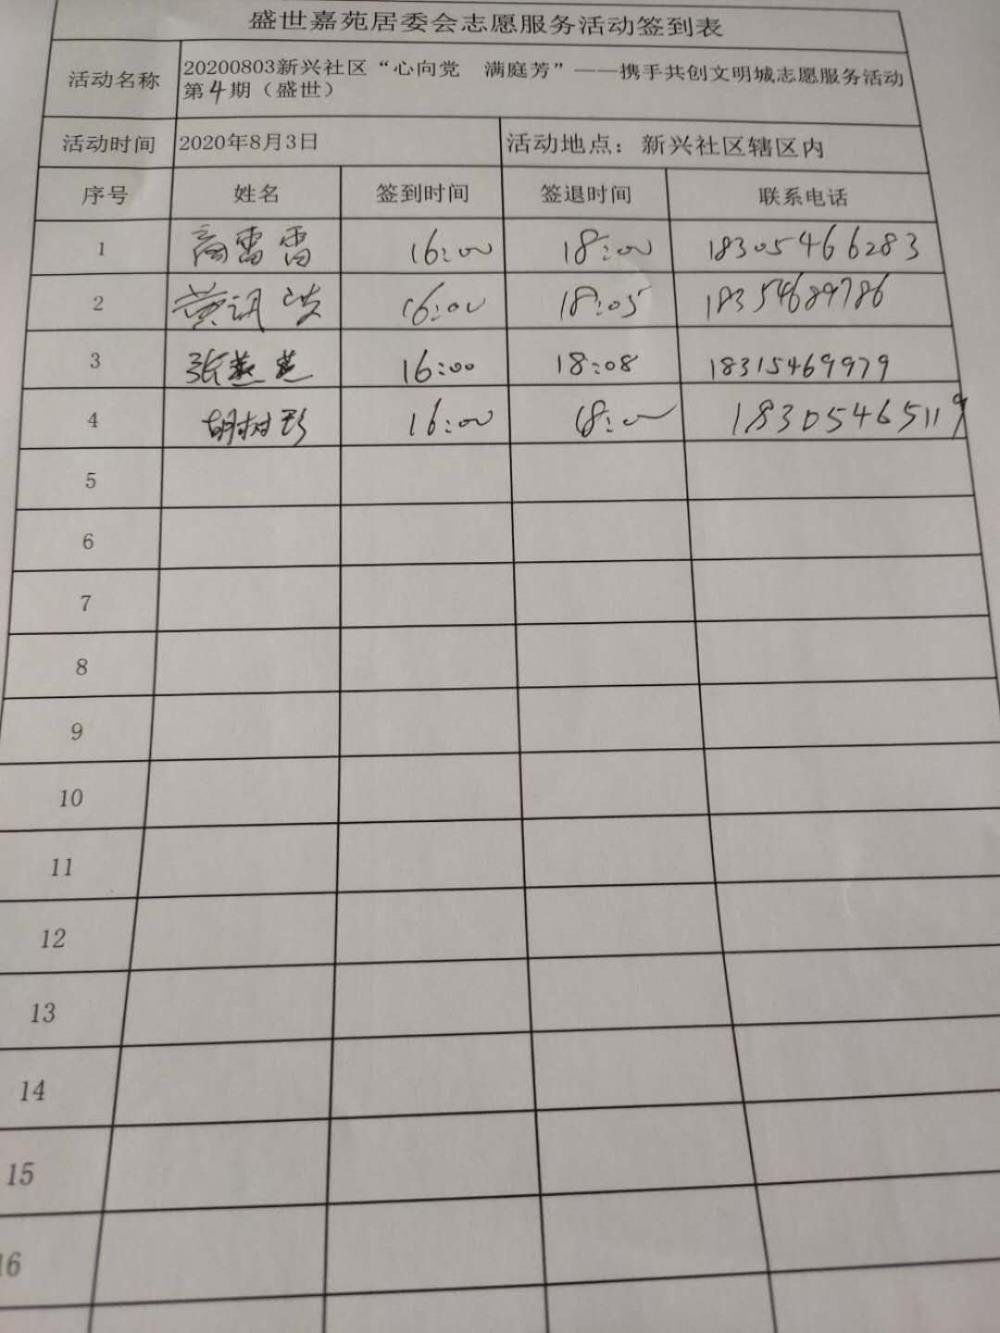 盛世嘉苑居委会志愿服务活动签到表
活动名称 20200803新兴社区“心向党 满庭芳”——携手共创文明城志愿服务活动
第4期（盛世）
活动时间 2020年8月3日 活动地点：新兴社区辖区内
序号 姓名 签到时间 签退时间 联系电话
1 高雷雷 16:00 18:00 18305466283
2 黄 16:00 18:05 18354689786
3 张燕燕 16:00 18:08 18315469979
4 胡树彩 16:00 18:00 18305465119
5
6
7
8
9
10
11
12
13
14
15
16